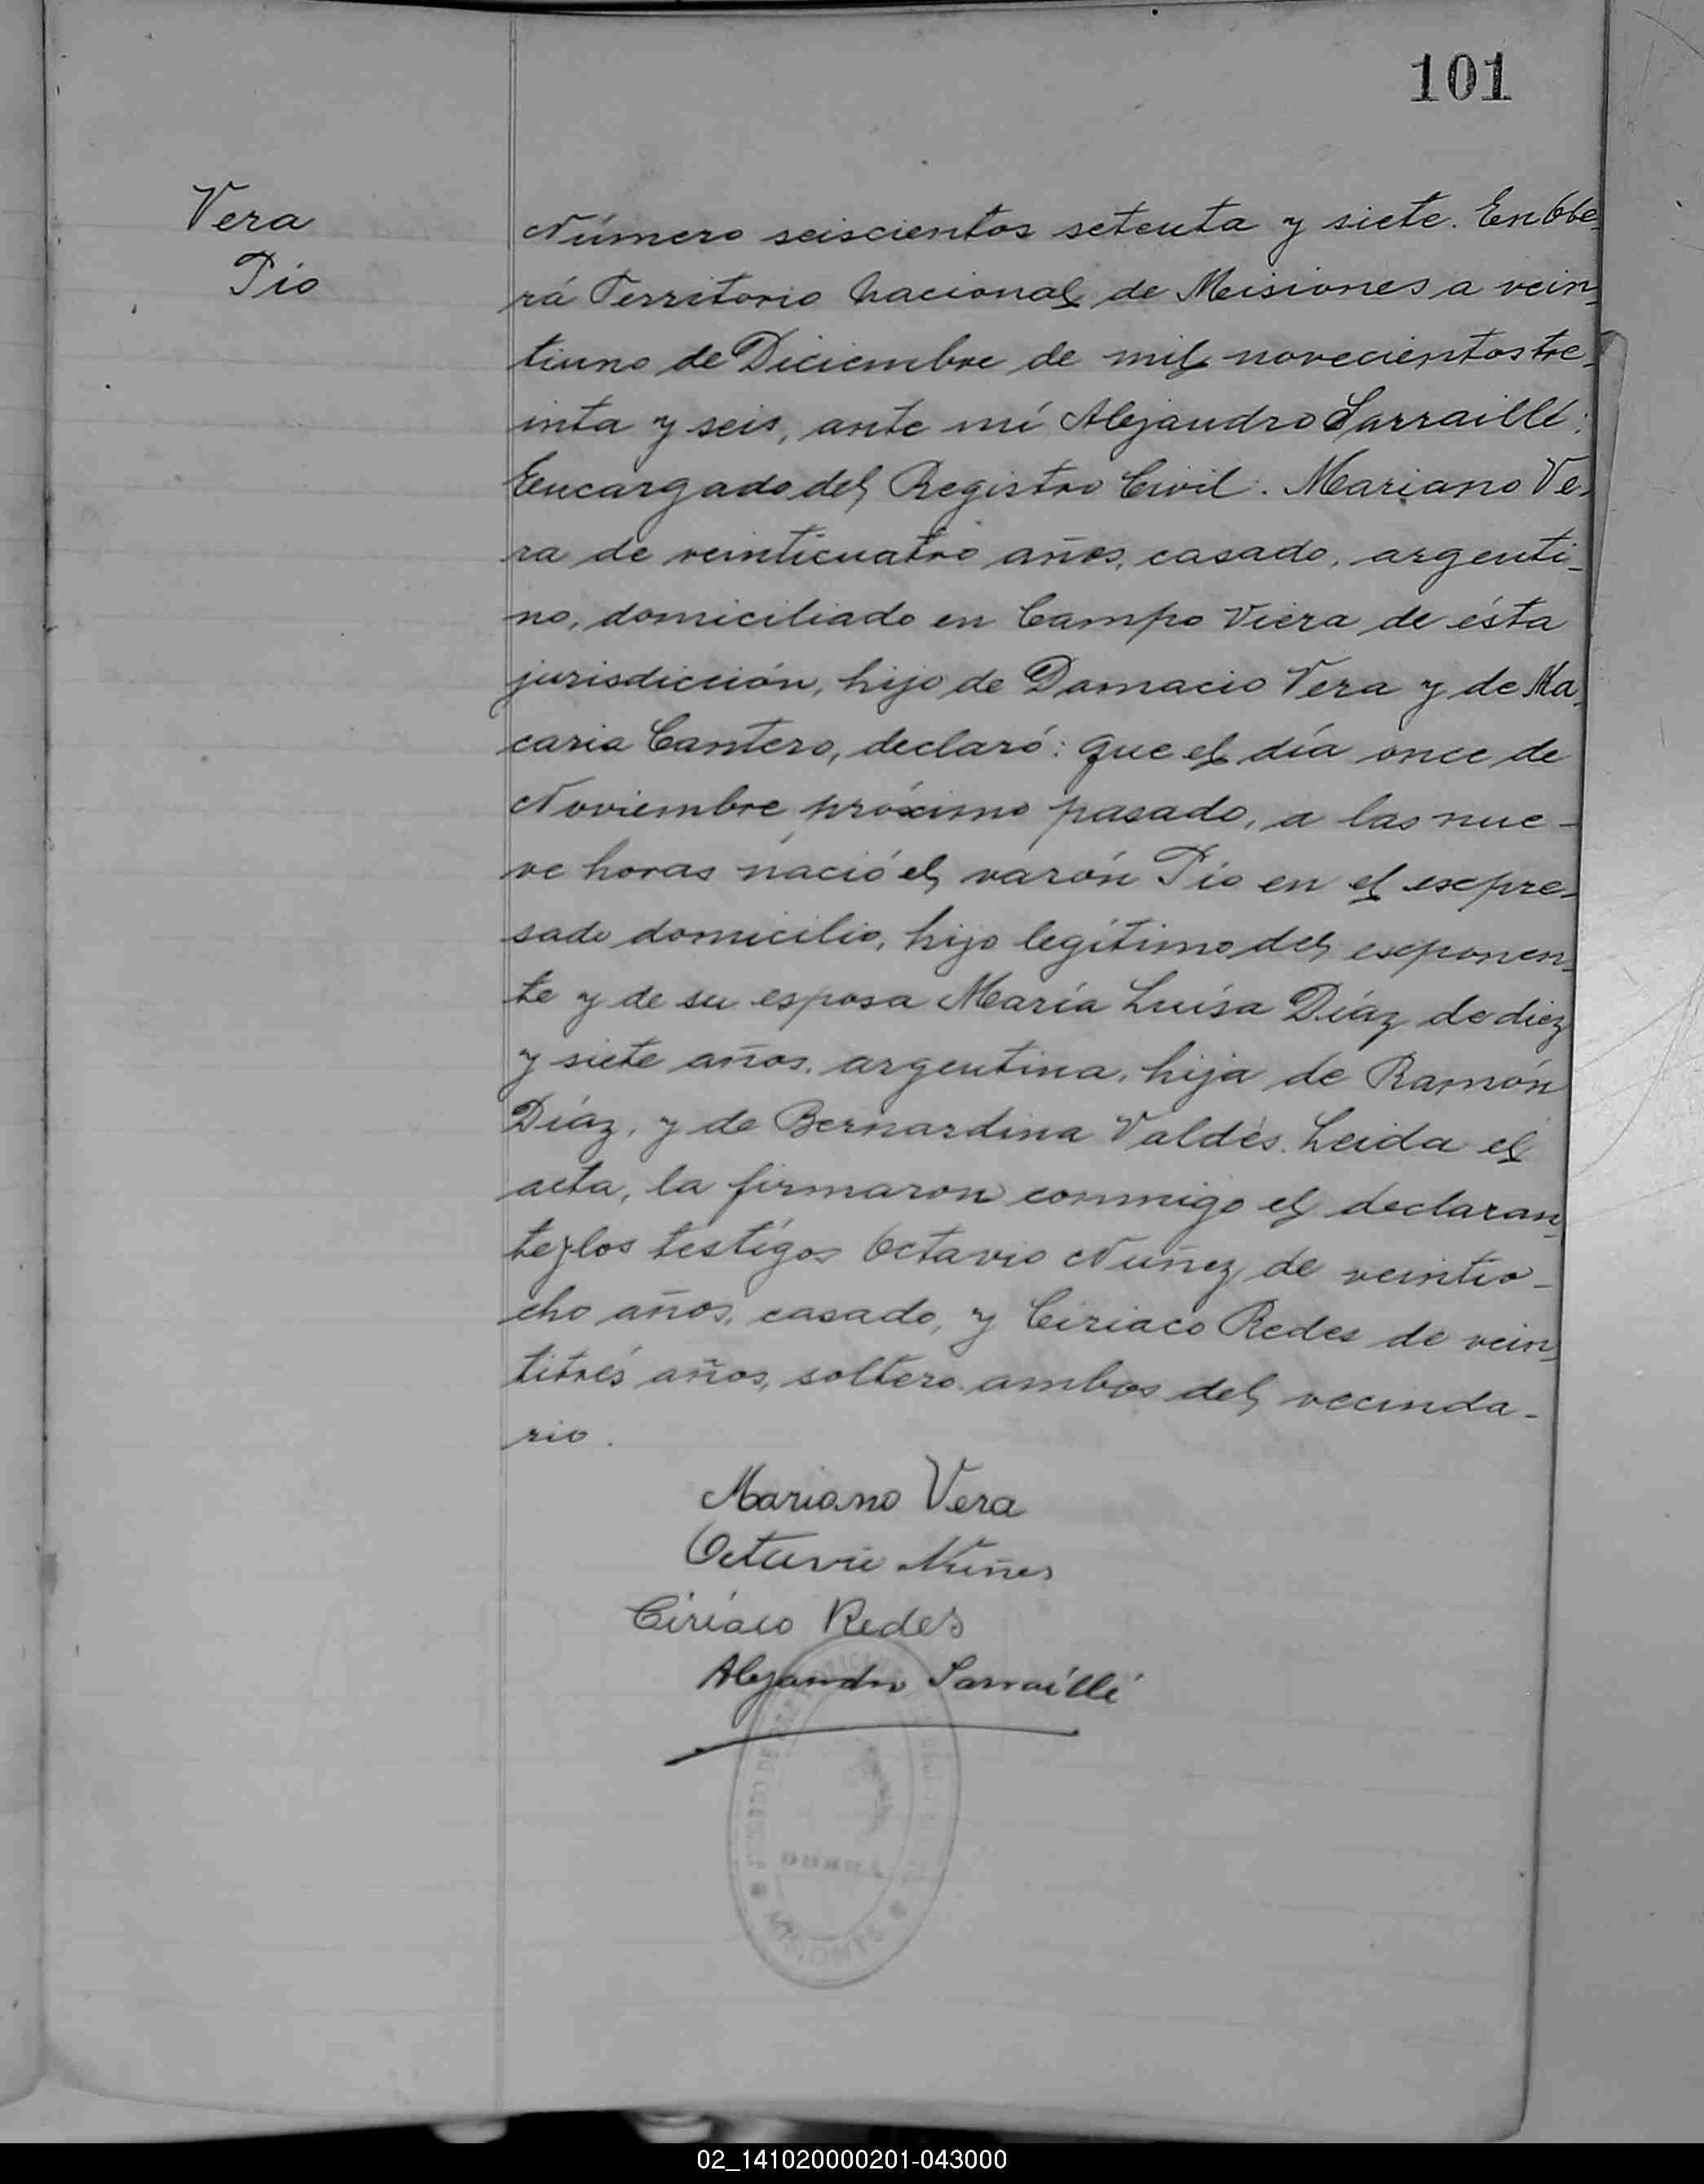 101
Vera
Pío
Número seiscientos setenta y siete. En Obe-
rá Territorio Nacional de Misiones a vein-
tiuno de Diciembre de mil novecientos tre-
inta y seis, ante mí Alejandro Sarraillé:
Encargado del Registro Civil: Mariano Ve-
ra de veinticuatro años, casado, argenti-
no, domiciliado en Campo Viera de ésta
jurisdicción, hijo de Damacio Vera y de Ma-
caria Cantero, declaró: que el día once de
Noviembre próximo pasado, a las nue-
ve horas nació el varón Pío en el expre-
sado domicilio, hijo legítimo del exponen-
te y de su esposa María Luísa Díaz de diez
y siete años, argentina, hija de Ramón
Díaz, y de Bernardina Valdés. Leida el
acta, la firmaron conmigo el declaran-
te y los testígos Octavio Nuñez de veintio-
cho años, casado, y Ciriaco Redes de vein-
titrés años, soltero ambos del vecinda-
rio.
Mariano Vera
Octavio Nuñes
Ciríaco Redes
Alejandro Sarraillé
MISIONES
02_141020000201-043000